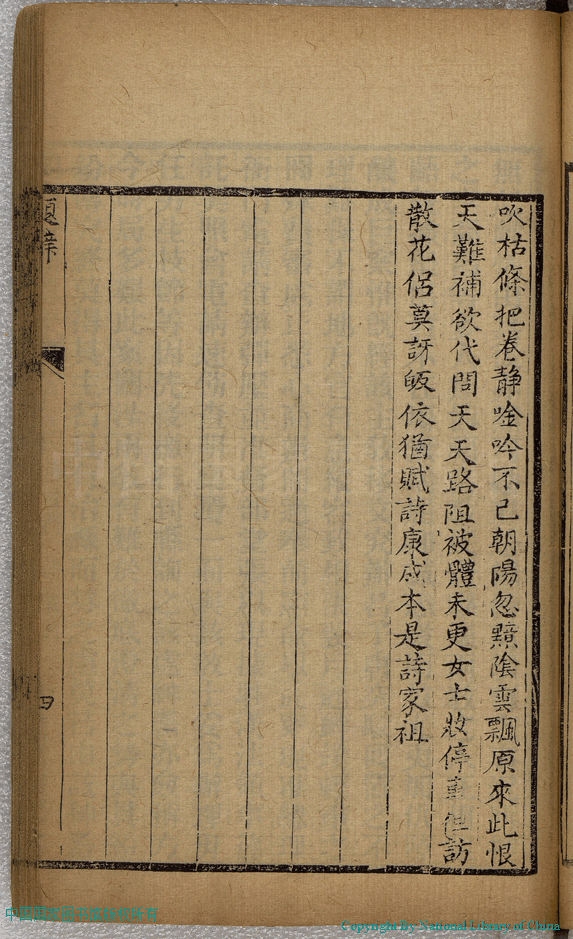 吹枯條把卷静唫吟不已朝陽忽黯陰雲飄原來此恨
天難補欲代問天天路阻被體未更女士妝停車但訪
散花侶莫訝皈依猶賦詩康成本是詩家祖
題辭
四
Copyright By National Library of China